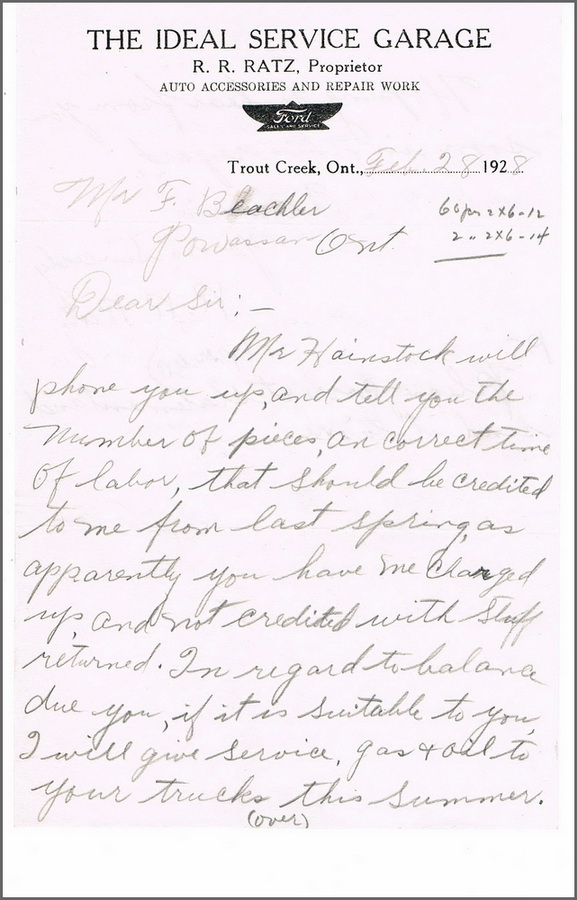 THE IDEAL SERVICE GARAGE
R. R. RATZ, Proprietor
AUTO ACCESSORIES AND REPAIR WORK
Ford
SALES AND SERVICE
Trout Creek, Ont., Feb. 28 1928
Mr F. Beachler
Powassan Ont
60 pcs 2x6-12
2 " 2x6-14
Dear Sir; -
Mr Hainstock will
phone you up, and tell you the
number of pieces, an correct time
of labor, that should be credited
to me from last spring, as
apparently you have me charged
up, and not credited with stuff
returned. In regard to balance
due you, if it is suitable to you,
I will give service, gas & oil to
your trucks this summer.
(over)